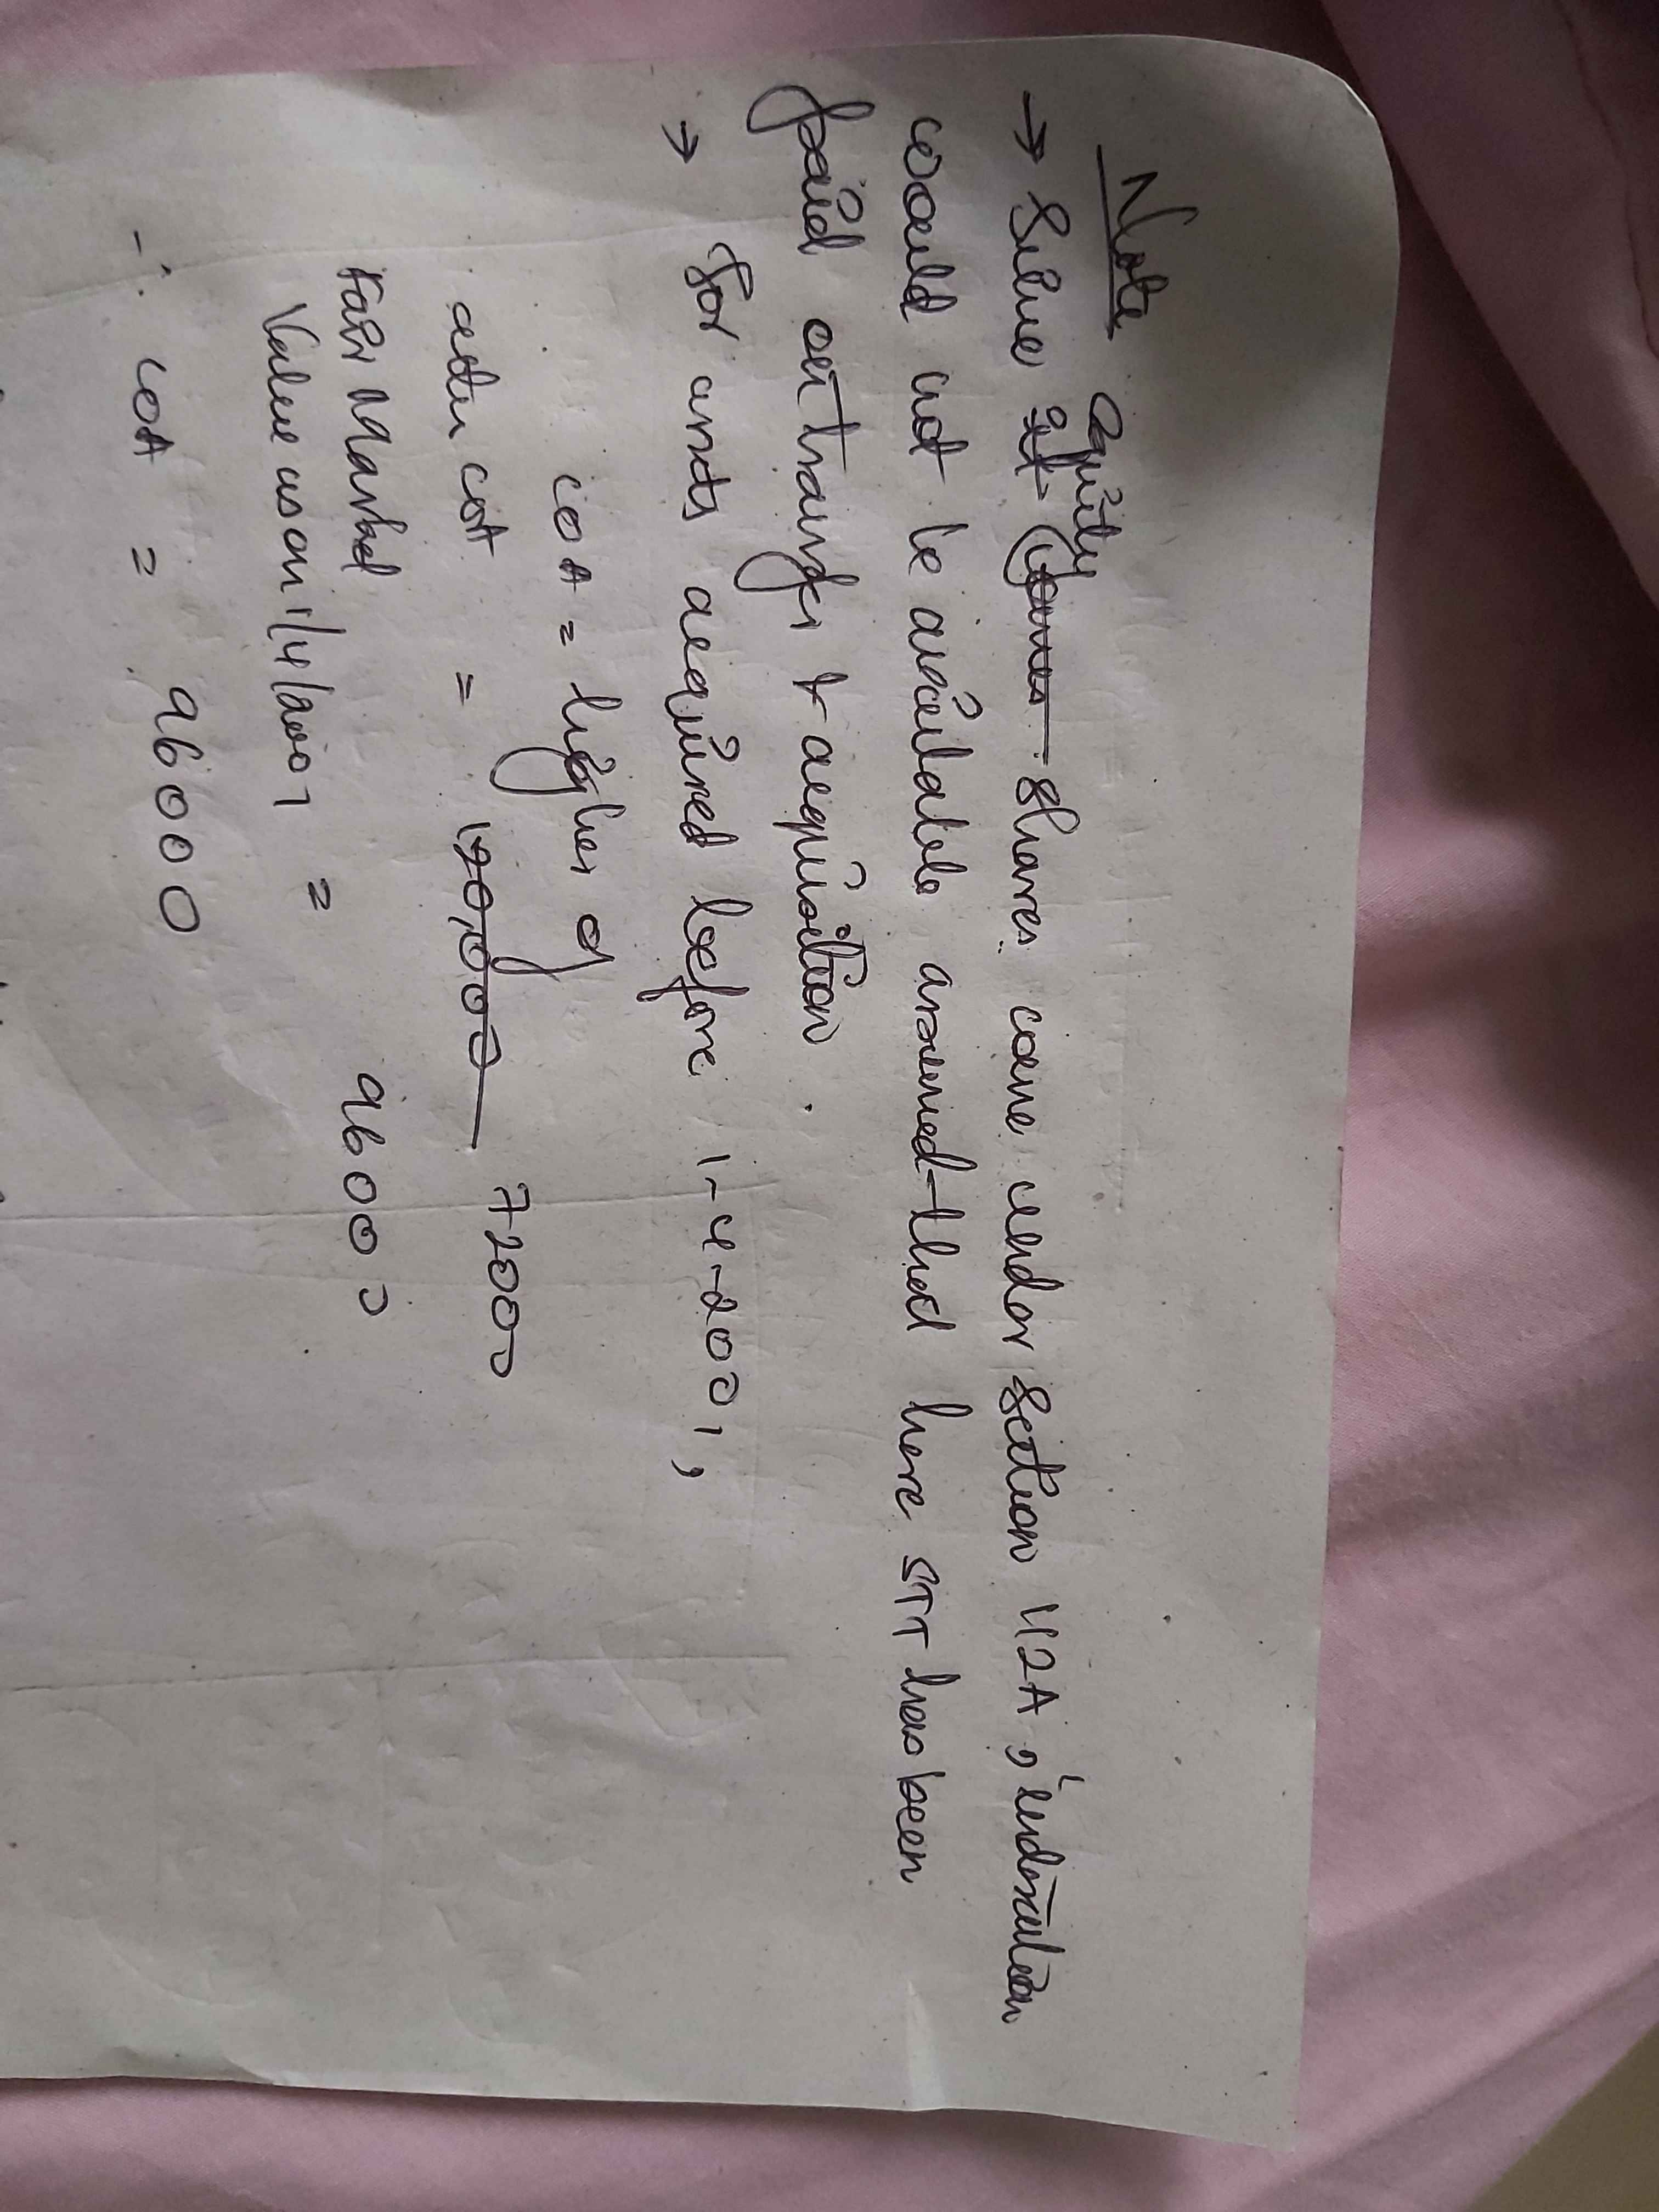 Note
equity
→ Since st (comes shares come under section 112A, indexation
would not be available assumed that here STT has been
paid on transfer & acquisition.
→ for assets acquired before 1-4-2001,
COA = higher of
actu cost = 120,000 72000
Fair Market
Value as on 1/4/2001 = 96000
∴ COA = 96000